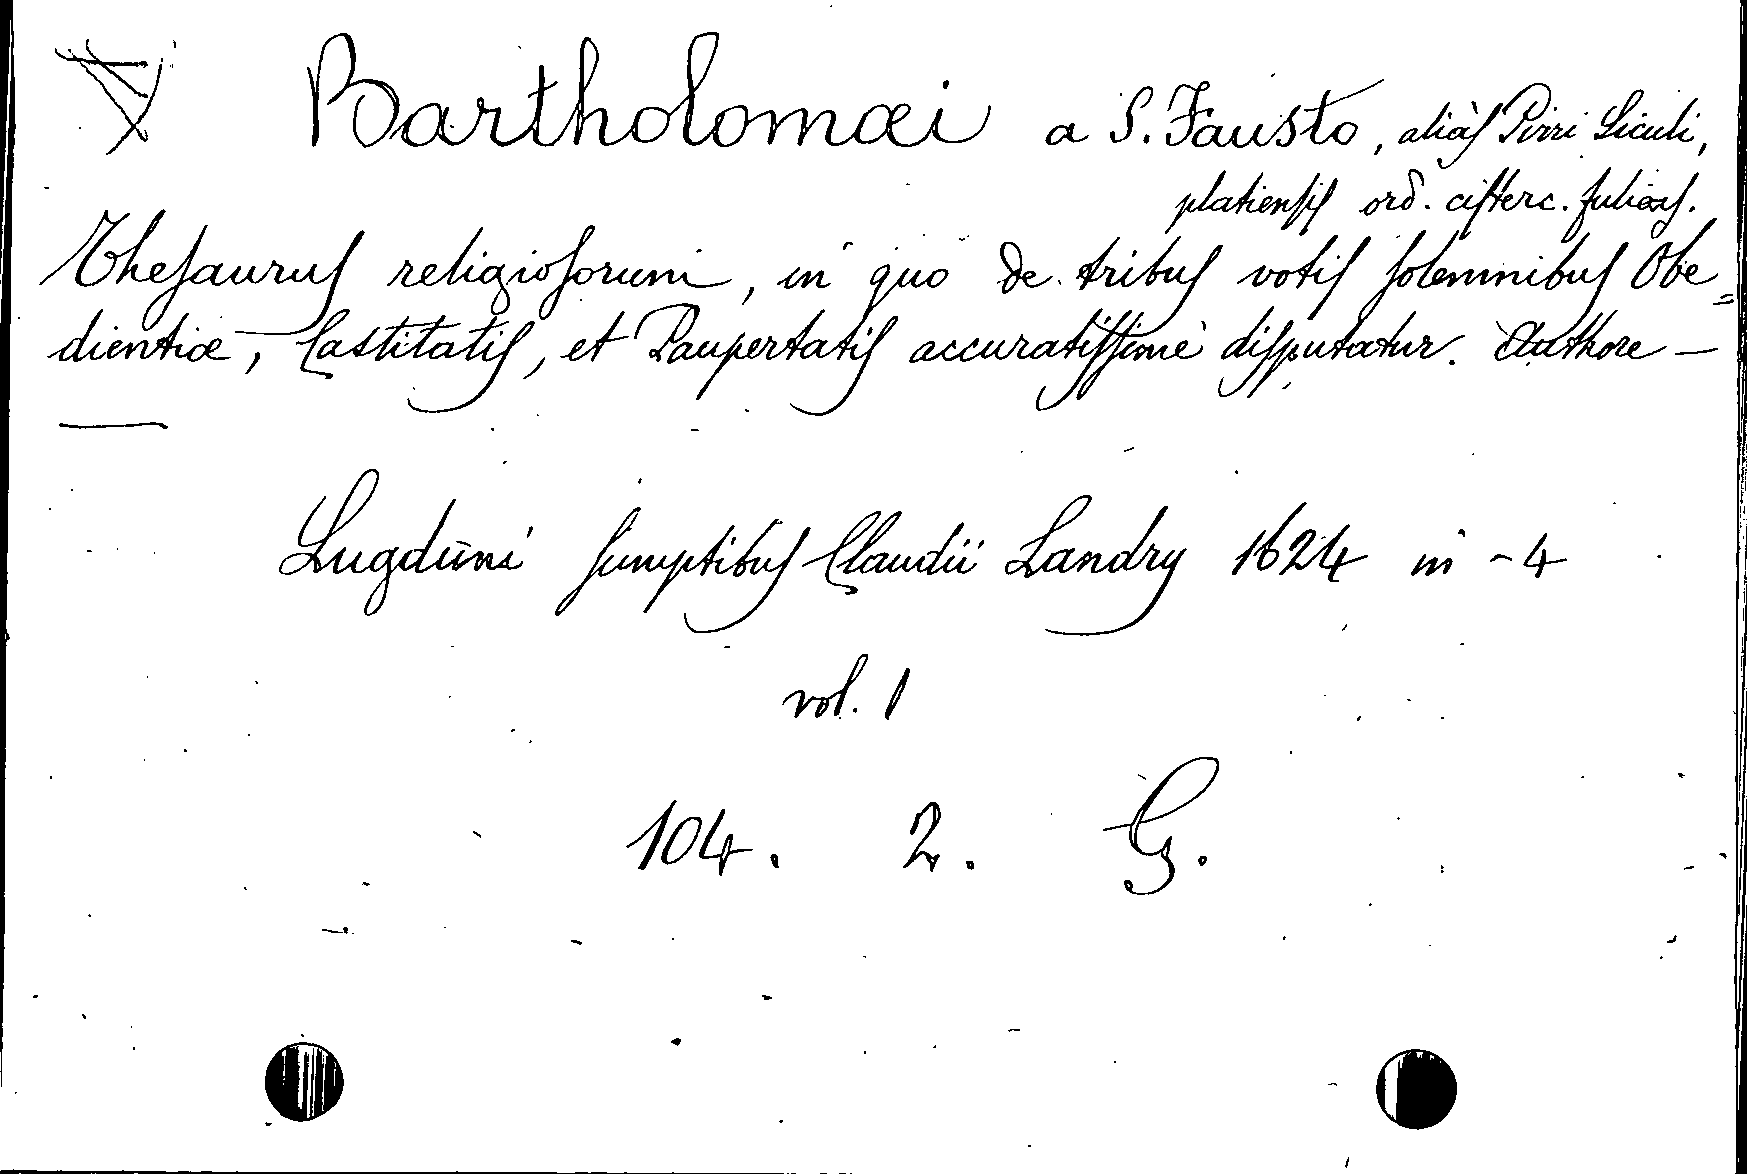 Bartholomæi a S. Fausto, aliàs Pirri Siculi,
platiensis ord. cisterc. fulias.
Thesaurus religiosorum, in quo de tribus votis solemnibus Obe=
dientiæ, Castitatis, et Paupertatis accuratissimè disputatur. Authore —
—
Lugduni sumptibus Claudii Landry 1624 in-4
vol. 1
104. 2. G.